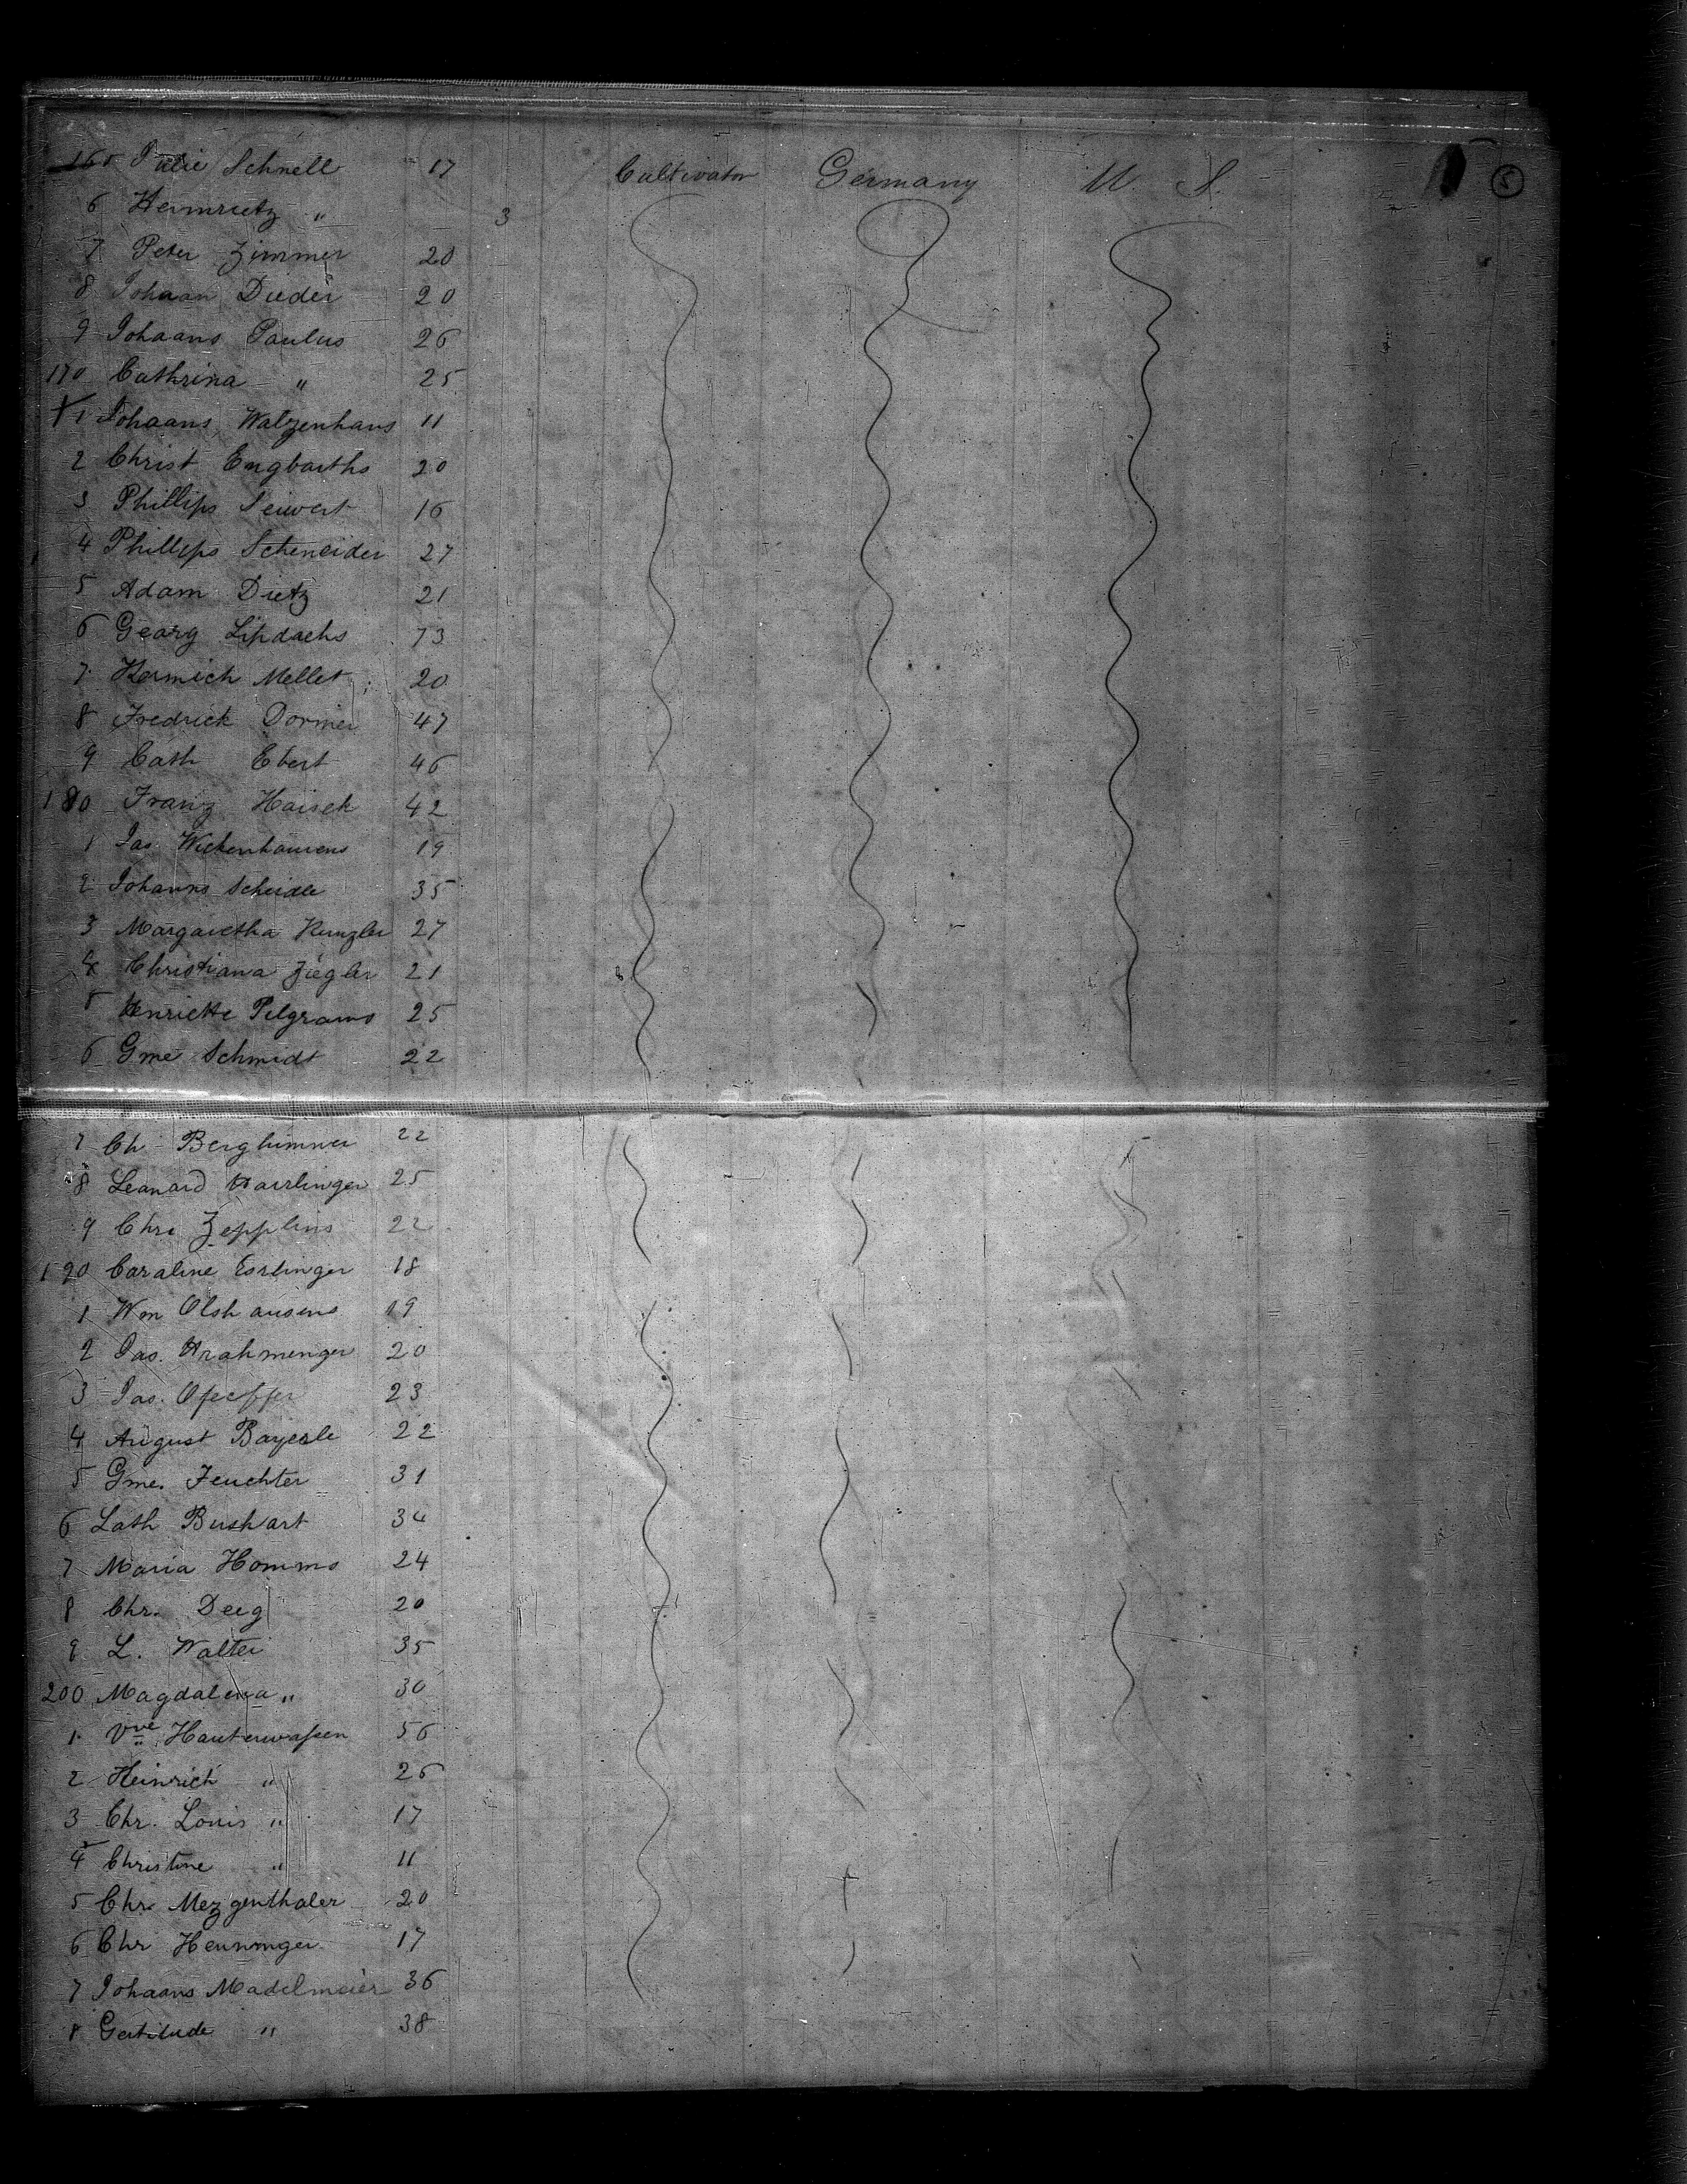 165 Julie Schnell 17 Cultivator Germany U. S. 5
6 Heinrietz " 3
7 Peter Zimmer 20
8 Johaan Dieder 20
9 Johaans Paulus 26
170 Cathrina " 25
1 Johaans Walzenhaus 11
2 Christ Engbarths 20
3 Phillips Seiwert 16
4 Phillips Scheneider 27
5 Adam Dietz 21
6 Georg Lipdachs 73
7 Hermich Mellet 20
8 Fredrick Dormer 47
9 Cath Ebert 46
180 Franz Haisch 42
1 Jas. Wickenhausens 19
2 Johanns Scheidle 35
3 Margaretha Kunzler 27
4 Christiana Ziegler 21
5 Henriette Pilgrams 25
6 Gme Schmidt 22
7 Ch Berghimner 22
8 Leanard Haisslinger 25
9 Chri Zepplins 22
190 Caraline Esslinger 18
1 Wm Olshausens 19
2 Jas. Hrahmenger 20
3 Jas. Opeffer 23
4 August Bayerle 22
5 Gme. Feuchter 31
6 Lath Bushart 34
7 Maria Homms 24
8 Chr. Deeg 20
9 L. Walter 35
200 Magdalena " 30
1 Vve Hauterwassen 56
2 Heinrich " 26
3 Chr. Louis " 17
4 Christine " 11
5 Chr. Mezgenthaler 20
6 Chr Henninger 17
7 Johaans Madelmeier 36
8 Gertilude " 38